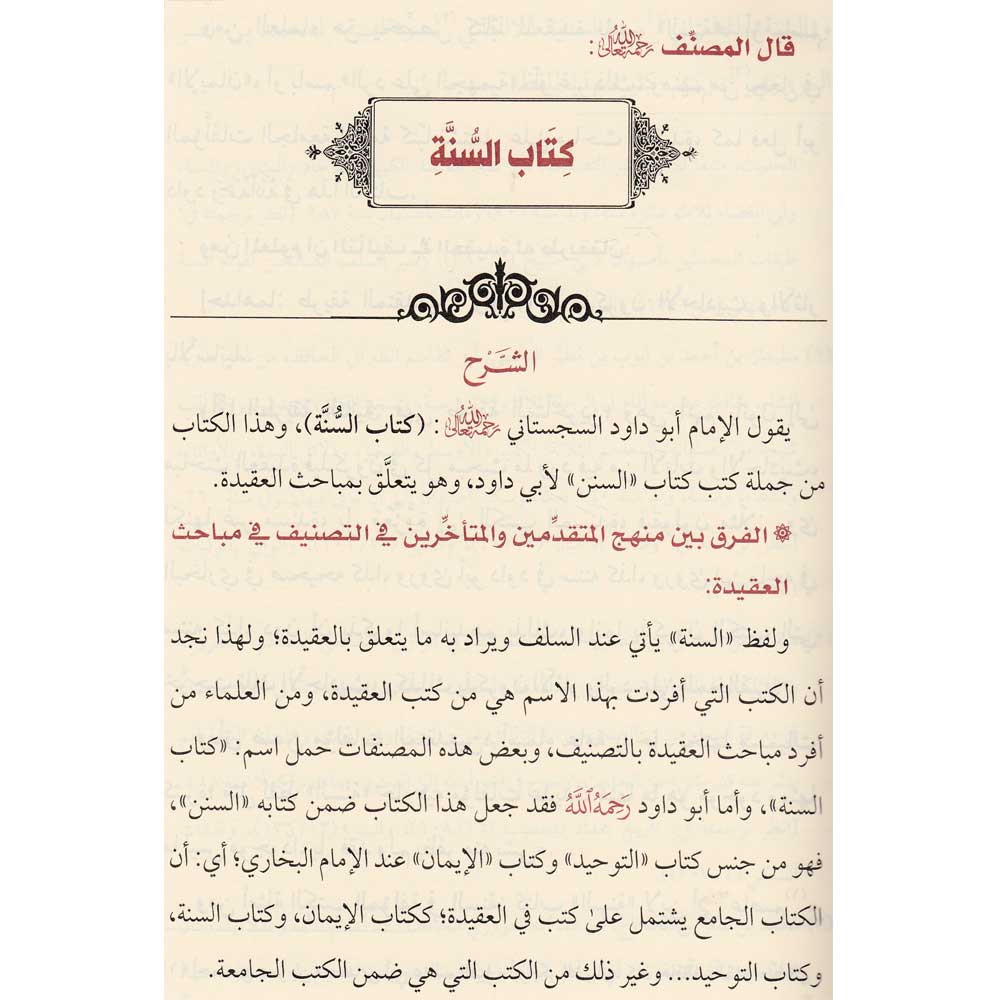 قال المصنِّف رحمه الله تعالى:
كِتَاب السُّنَّةِ
الشَّرْح
يقول الإمام أبو داود السجستاني رحمه الله تعالى: (كتاب السُّنَّة)، وهذا الكتاب
من جملة كتب كتاب «السنن» لأبي داود، وهو يتعلَّق بمباحث العقيدة.
الفرق بين منهج المتقدِّمين والمتأخِّرين في التصنيف في مباحث
العقيدة:
ولفظ «السنة» يأتي عند السلف ويراد به ما يتعلق بالعقيدة؛ ولهذا نجد
أن الكتب التي أفردت بهذا الاسم هي من كتب العقيدة، ومن العلماء من
أفرد مباحث العقيدة بالتصنيف، وبعض هذه المصنفات حمل اسم: «كتاب
السنة»، وأما أبو داود رَحِمَهُ ٱللَّهُ فقد جعل هذا الكتاب ضمن كتابه «السنن»،
فهو من جنس كتاب «التوحيد» وكتاب «الإيمان» عند الإمام البخاري؛ أي: أن
الكتاب الجامع يشتمل علىٰ كتب في العقيدة؛ ككتاب الإيمان، وكتاب السنة،
وكتاب التوحيد... وغير ذلك من الكتب التي هي ضمن الكتب الجامعة.